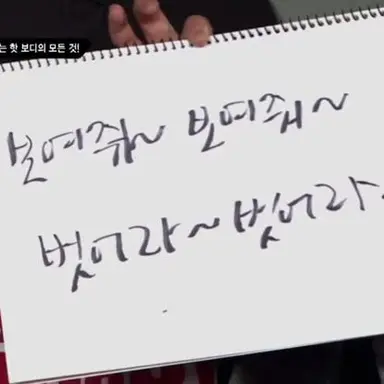 는 핫 보디의 모든 것!
보여줘~ 보여줘~
벗어라~벗어라~